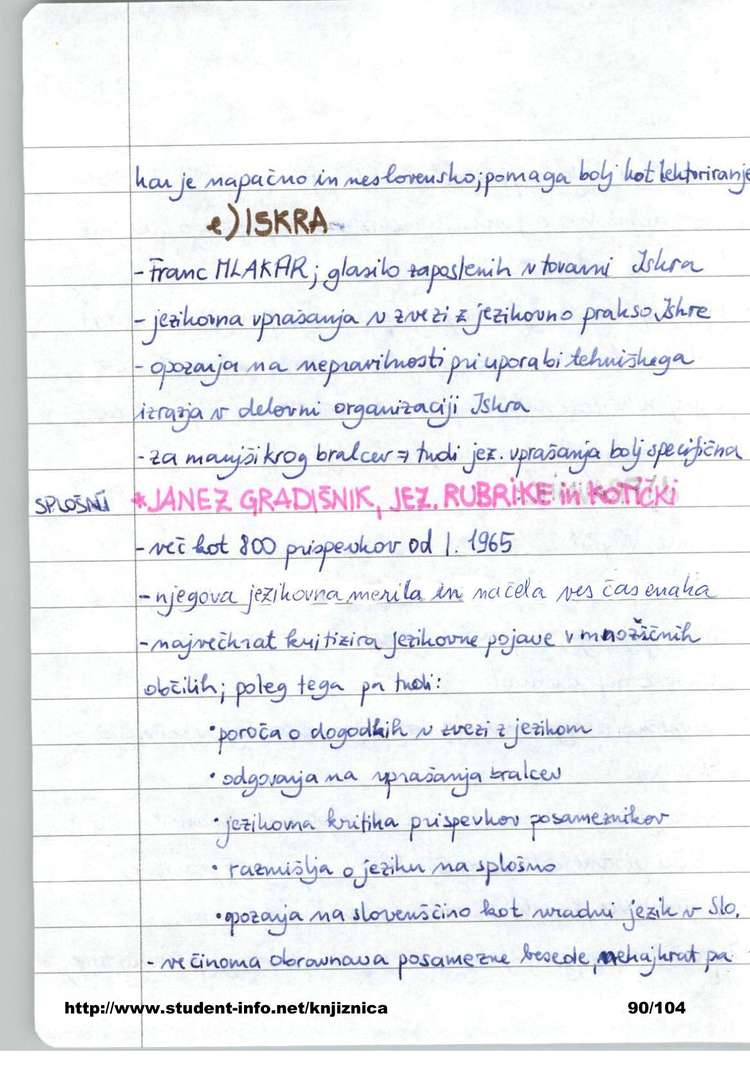 kar je napačno in neslovensko; pomaga bolj kot lektoriranje
e) ISKRA
- Franc MLAKAR; glasilo zaposlenih v tovarni Iskra
- jezikovna vprašanja v zvezi z jezikovno prakso Iskre
- opozarja na nepravilnosti pri uporabi tehniškega
izrazja v delovni organizaciji Iskra
- za manjši krog bralcev ⇒ tudi jez. vprašanja bolj specifična
SPLOŠNI * JANEZ GRADIŠNIK, JEZ. RUBRIKE in KOTIČKI
- več kot 800 prispevkov od l. 1965
- njegova jezikovna merila in načela ves čas enaka
- največkrat kritizira jezikovne pojave v množičnih
občilih; poleg tega pa tudi:
• poroča o dogodkih v zvezi z jezikom
• odgovarja na vprašanja bralcev
• jezikovna kritika prispevkov posameznikov
• razmišlja o jeziku na splošno
• opozarja na slovenščino kot uradni jezik v Slo.
- večinoma obravnava posamezne besede, nekajkrat pa
http://www.student-info.net/knjiznica 90/104